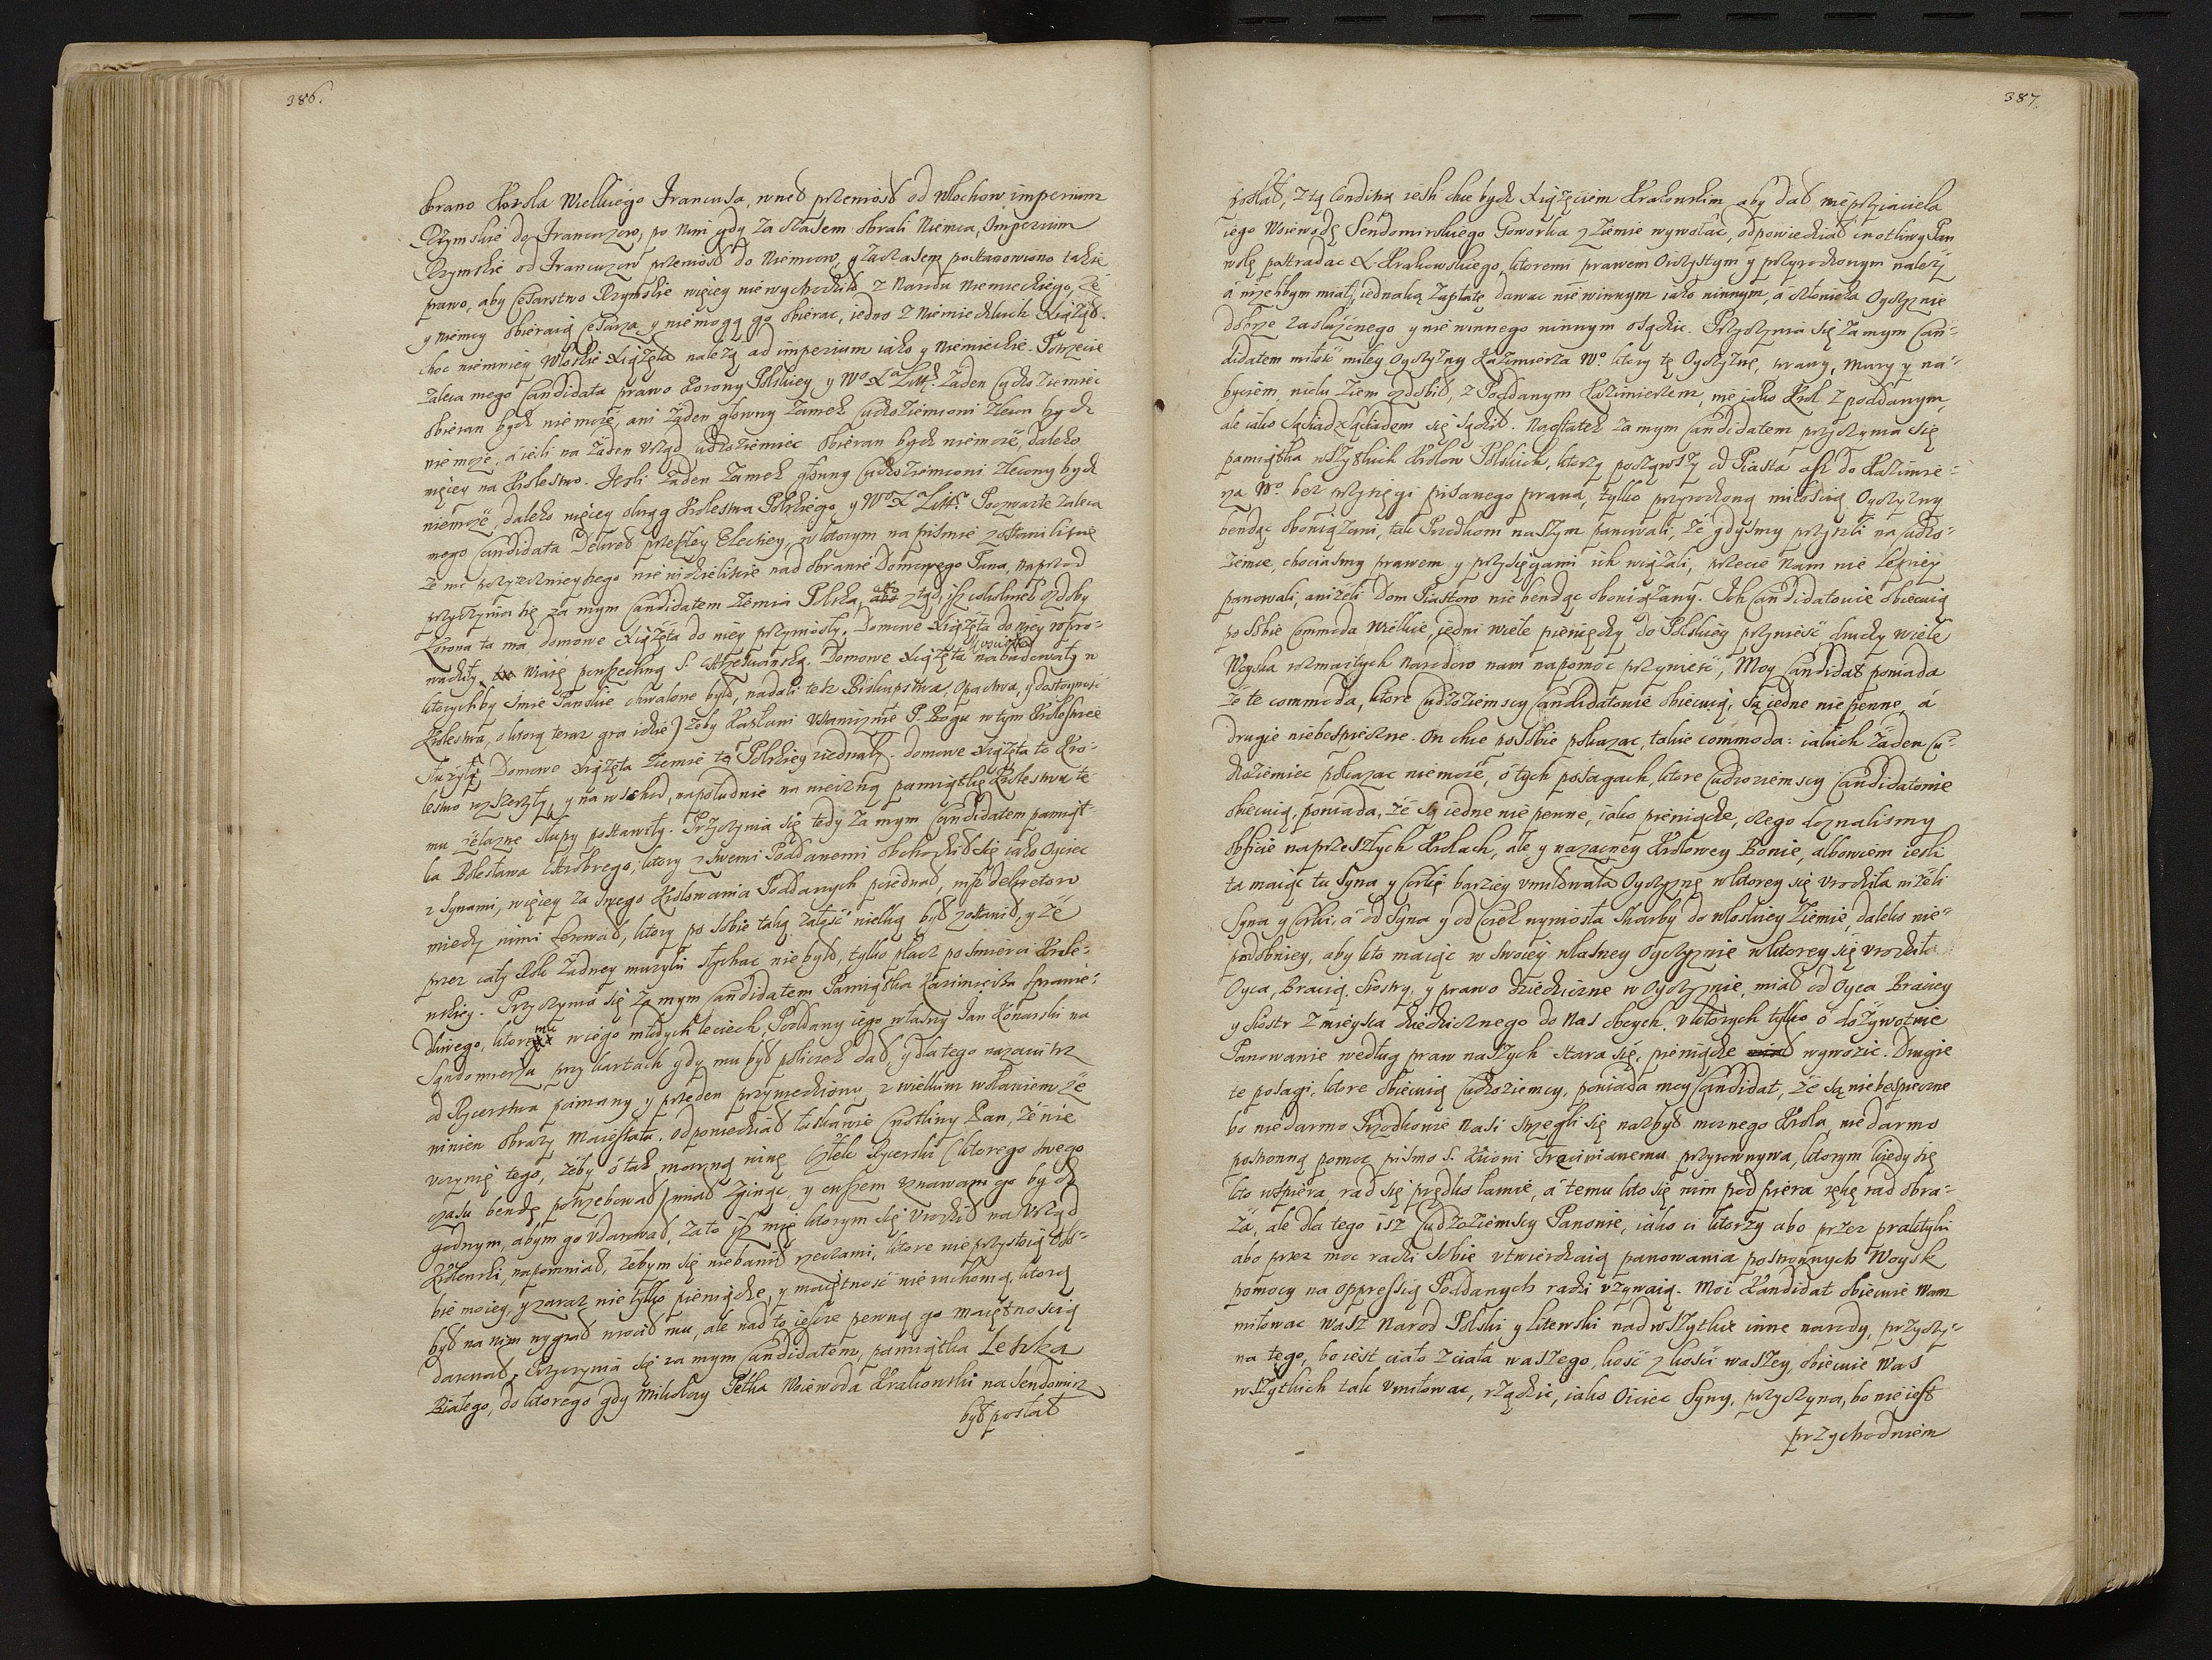 386.
obrano Karola Wielkiego Francusa, wnet przeniosł od Włochow imperium
Rzymskie do Francuzow, po nim gdy za czasem obrali Niemca, Imperium
Rzymskie od Francuzow przeniosł do Niemcow, y zaczasem postanowiono takie
prawo, aby Cesarstwo Rzymskie więcey niewychodziło z Narodu niemieckiego, że
y niemcy obieraią Cesarza y niemogą go obierac, iedno z niemieckich Xiążąt.
choc niemniey Włoskie Xiążęta należą ad imperium iako y niemieckie. Potrzecie
zaleca mego Candidata prawo Korony Polskiey y Wo X a Litto. żaden Cudzoziemiec
obieran bydz niemoże, ani żaden głowny zamek Cudzoziemcowi zlecon bydz
niemoże, á iesli na żaden Vrząd cudzoziemiec obieran bydz niemoże, daleko
więcey na Krolestwo. Iesli żaden zamek głowny Cudzoziemcowi zlecony bydz
niemoże, daleko więcey okrąg Krolestwa Polskiego y Wo X Litto. Poczwarte zaleca
mego Candidata Dekret przeszley Electiey, w ktorym na pismie zostawilisme
że nic pozyteczniejszego nie widzieliscie nad obranie Domowego Pana, naprzod
przyczynia się za mym Candidatem ziemia Polska, abo ztąd, isz cokolwiek ozdoby
Korona ta ma, domowe Xiążęta do niey przyniosły. Domowe Xiążęta do niey wpro-
wadziły wiarę powszechną S. Chrzescianską. Domowe Xiążęta Koscioły nabudowały w
ktorychby Imie Panskie chwalone było, nadali tesz Biskupstwa, Opactwa, y dostoynosci
Krolestwa, o ktorą teraz gra idzie) żeby Kapłani Vstawicznie P. Bogu wtym Krolestwie
służyły, Domowe Xiążęta Ziemie tę Polskiey ziednały. domowe Xiążęta to Kro-
lestwo rozszerzyły, y na wschod, napołudnie na wieczną pamiątkę Krolestwu te
mu żelazne słupy postawiły. Przyczynia się tedy za mym Candidatem pamiąt-
ka Bolesława Chrobrego, ktory z swemi Poddanemi obchodził się iako Oyciec
z Synami, więcey za swego Krolowania Poddanych poiednał, nisz dekretow
miedzy nimi ferował, ktory po sobie taką żałość wielką był zostawił, y że
przez cały Rok żadney muzyki słychac nie było, tylko płacz po smierci Krole-
wskiey. Przyczynia się za mym Candidatem Pamiątka Kazimierza Sprawie-
dliwego, ktoremu w iego młodych leciech Poddany iego własny Ian Konarski na
Sędomierzu przy kartach gdy mu był policzek dał, y dla tego nazaiutrz
od Rycerstwa poimany y przeden przywiedziony, z wielkim wołaniem że
winien obrazy Maiestatu. odpowiedział łaskawie Cnotliwy Pan, że nie
uczynię tego, żeby o tak marną winę Człek Rycerski (ktorego swego
czasu bendę potrzebował) miał zginąc, y owszem uznawam go bydz
godnym, abym go vdarował, za to isz mię ktorym się Vrodził na Vrząd
Krolewski, napomniał, żebym się niebawił rzeczami, ktore nieprzystoią Oso-
bie moiey, y zaraz nie tylko pieniądze, y maiętność nie ruchomą, ktorą
był na nim wygrał wrocił mu, ale nad to ieszcze pewną go maiętnoscią
darował. Przyczynia się za mym Candidatem, pamiątka Leszka
Białego, do ktorego gdy Mikołay Pełka Woiewoda Krakowski na Sendomirz
był posłał
387.
posłał, z tą Conditią iesli chce bydz Xiążęciem Krakowskim aby dał nieprzyiaciela
iego Woiewodę Sendomirskiego Goworka z ziemie wywołać, odpowiedział cnotliwy Pan
wolę postradac X. Krakowskiego, ktoremi prawem Oiczystym y przyrodzonym należy
á niżelibym miał, iednaką zapłatę dawac niewinnym iako winnym, á człowieka Oyczyznie
dobrze zasłużonego y niewinnego winnym osądzic. Przyczynia się za mym Can-
didatem miłość miłey Oyczyzny Kazimierza Wo. ktory tę Oyczyznę, prawy, mury y na-
byciem wielu ziem ozdobił, z Poddanym Kazimierzem, nie iako Krol z poddanym,
ale iako Sąsiad z Sąsiadem się sądził. Naostatek za mym Candidatem przyczynia się
pamiątka wszytkich Krolow Polskich, ktorzy począwszy od Piasta asz do Kazimie-
rza Wo. bez przysięgi pisanego prawa, tylko przyrodzoną miłoscią Oyczyzny
bendąc obowiązani, tak Przodkom naszym panowali, że gdysmy przyszli na Cudzo-
ziemce, chociasmy prawem y przysięgami ich wiązali, przecie Nam nie lepiey
panowali, aniżeli Dom Piastow nie bendąc obowiązany. Ich Candidatowie obiecuią
po sobie Commoda wielkie, iedni wiele pieniędzy do Polskiey przynieść, drudzy wiele
Woyska rozmaitych Narodow nam na pomoc przynieść, Moy Candidat powiada
że te commoda, ktore Cudzoziemscy Candidatowie obiecuią, są iedne niepewne, á
drugie niebespieczne. On chce po sobie pokazac, takie commoda: iakich żaden Cu-
dzoziemiec pokazac niemoże, ó tych posagach, ktore Cudzoziemscy Candidatowie
obiecuią, powiada, że są iedne nie pewne, iako pieniądze, czego doznalismy
obficie naprzeszłych Krolach, ale y na zacney Krolowey Bonie, albowiem iesli
ta maiąc tu Syna y Corkę barziey vmiłowała Oyczyznę w ktorey się Vrodziła niżeli
Syna y Corki, á od Syna y od Corek wyniosła skarby do włoskiey Ziemie, daleko nie-
podobniey, aby kto maiąc w swoiey własney Oyczyznie w ktorey się vrodził
Oyca, Bracią, Siostry, y prawo dziedziczne w Oyczyznie, miał od Oyca Braciey
y Siostr z mieysca dziedzicznego do Nas obcych, v ktorych tylko ó dożywotnie
Panowanie według praw naszych stara się, pieniądze wywozic. Drugie
te posagi, ktore obiecuią Cudzoziemcy, powiada moy Candidat, że są niebespieczne
bo niedarmo Przodkowie Nasi strzegli się nazbyt mocnego Krola, nie darmo
postronną pomoc pismo S. Kiiowi Trzcinianemu przyrownywa, ktorym kiedy się
kto wspiera, rad się prędko łamie, á temu kto się nim podpiera rękę rad obra-
ża, ale dla tego isz Cudzoziemscy Panowie, iako ci ktorzy abo przez praktyki
abo przez moc radzi sobie vtwierdzaią panowania postronnych Woysk
pomocy na oppressią Poddanych radzi vżywaią. Moi Kandidat obiecuie Wam
miłowac wasz Narod Polski y Litewski nad wszytkie inne narody, przyczy-
na tego, bo iest ciało z ciała waszego, kość z kości waszey, obiecuie was
wszytkich tak vmiłowac, rządzic, iako Oiciec Syny, przyczyna, bo nie iest
przychodniem